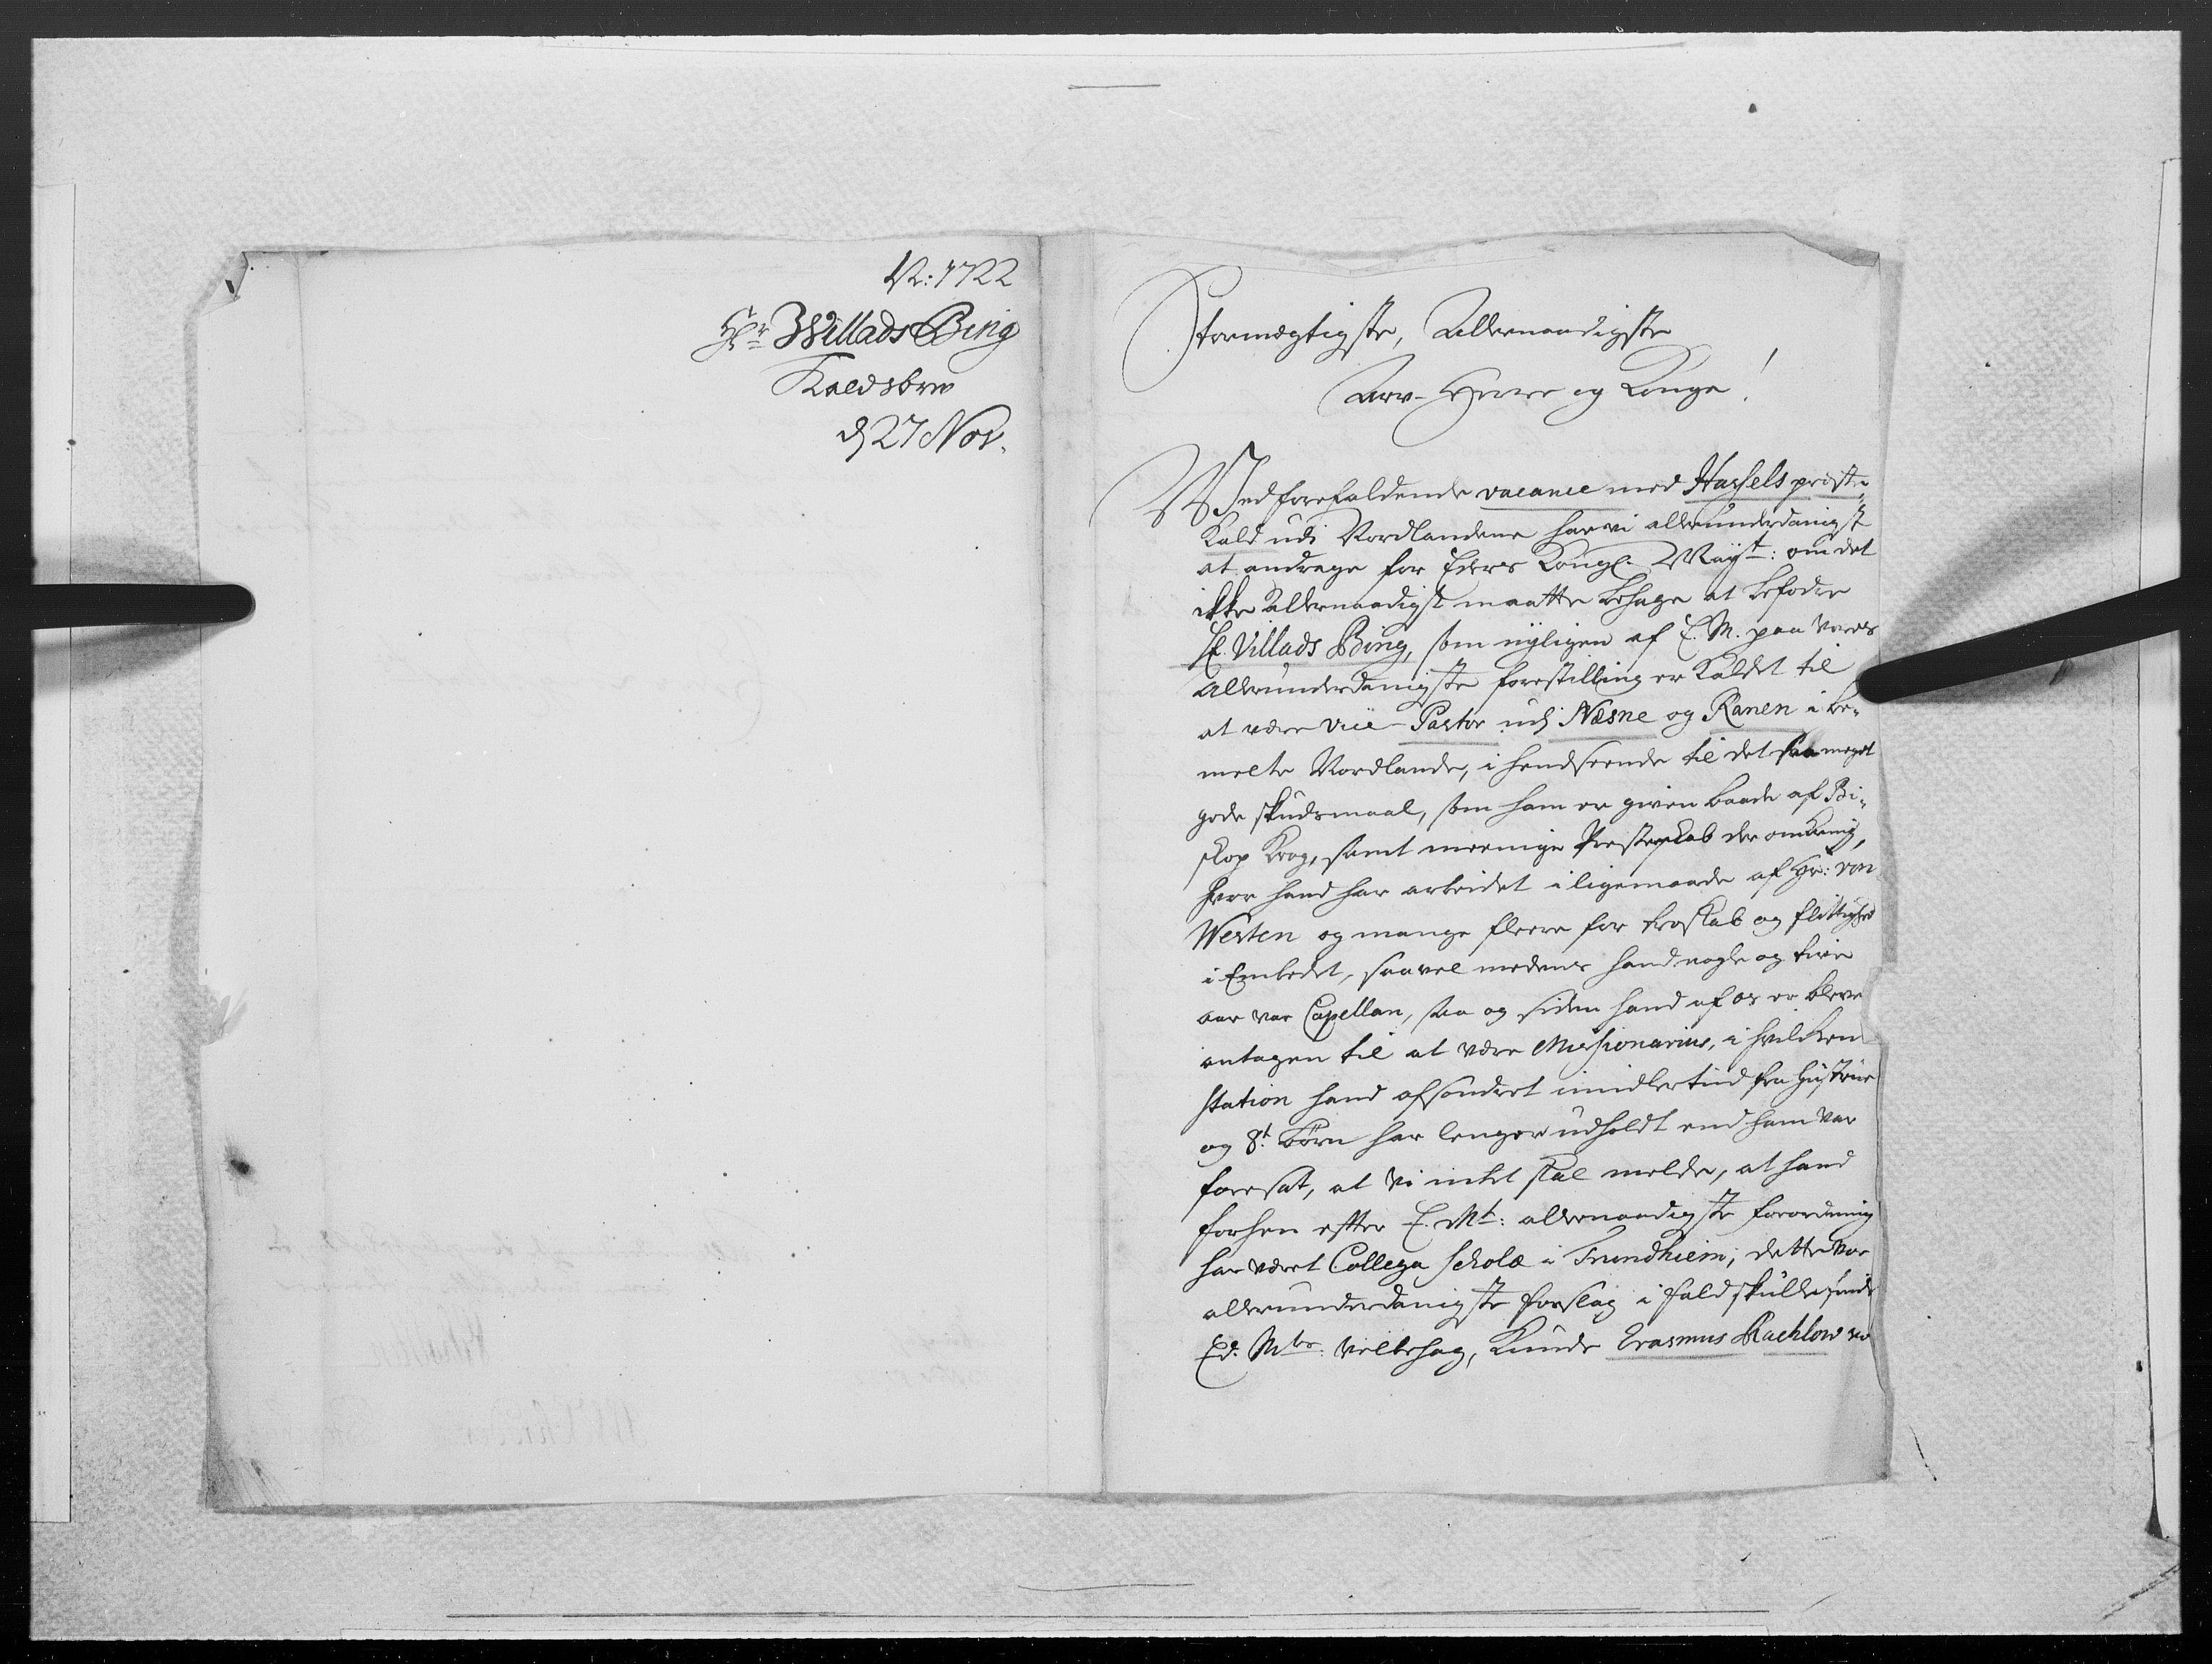 N: 1722
Hr Willads Bing
Kaldsbrev
d 27 Nov.
Stormægtigste, Allernaadigste
Arv-Herre og Konge!
Ved forefaldende vacance med Hassels præste-
Kald udi Nordlandene har vi allerunderdanigst
at andrage for Eders Kongl. Mayst: om det
ikke Allernaadigst maatte behage at befodre
Hr. Villads Bing, som nyligen af E. M. paa vores
Allerunderdanigste forestilling er kaldet til
at være vice-Pastor udj Næsne og Ranen i be-
melte Nordlande, i henseende til det saa meget
gode skudsmaal, som ham er given baade af Bi-
skop Krog, samt meenige Presteskab der omkring,
hvor hand har arbeidet i ligemaade af Hr: von
Westen og mange fleere for troskab og flittighed
i Embedet, saavel medens hand nogle og tive
aar var Capellan, saa og siden hand af os er bleven
antagen til at være Missionarius, i hvilken
station hand afsondret imidlertiid fra Hustrue
og 8t. børn har lenger udholdt end ham var
foresat, at vi intet skal melde, at hand
forhen efter E. Mt: allernaadigste forordning
har været Collega scholæ i Trundhiem; dette vor
allerunderdanigste forslag i fald skulle finde
Ed. Mts: Velbehag, kunde Erasmus Rachlow